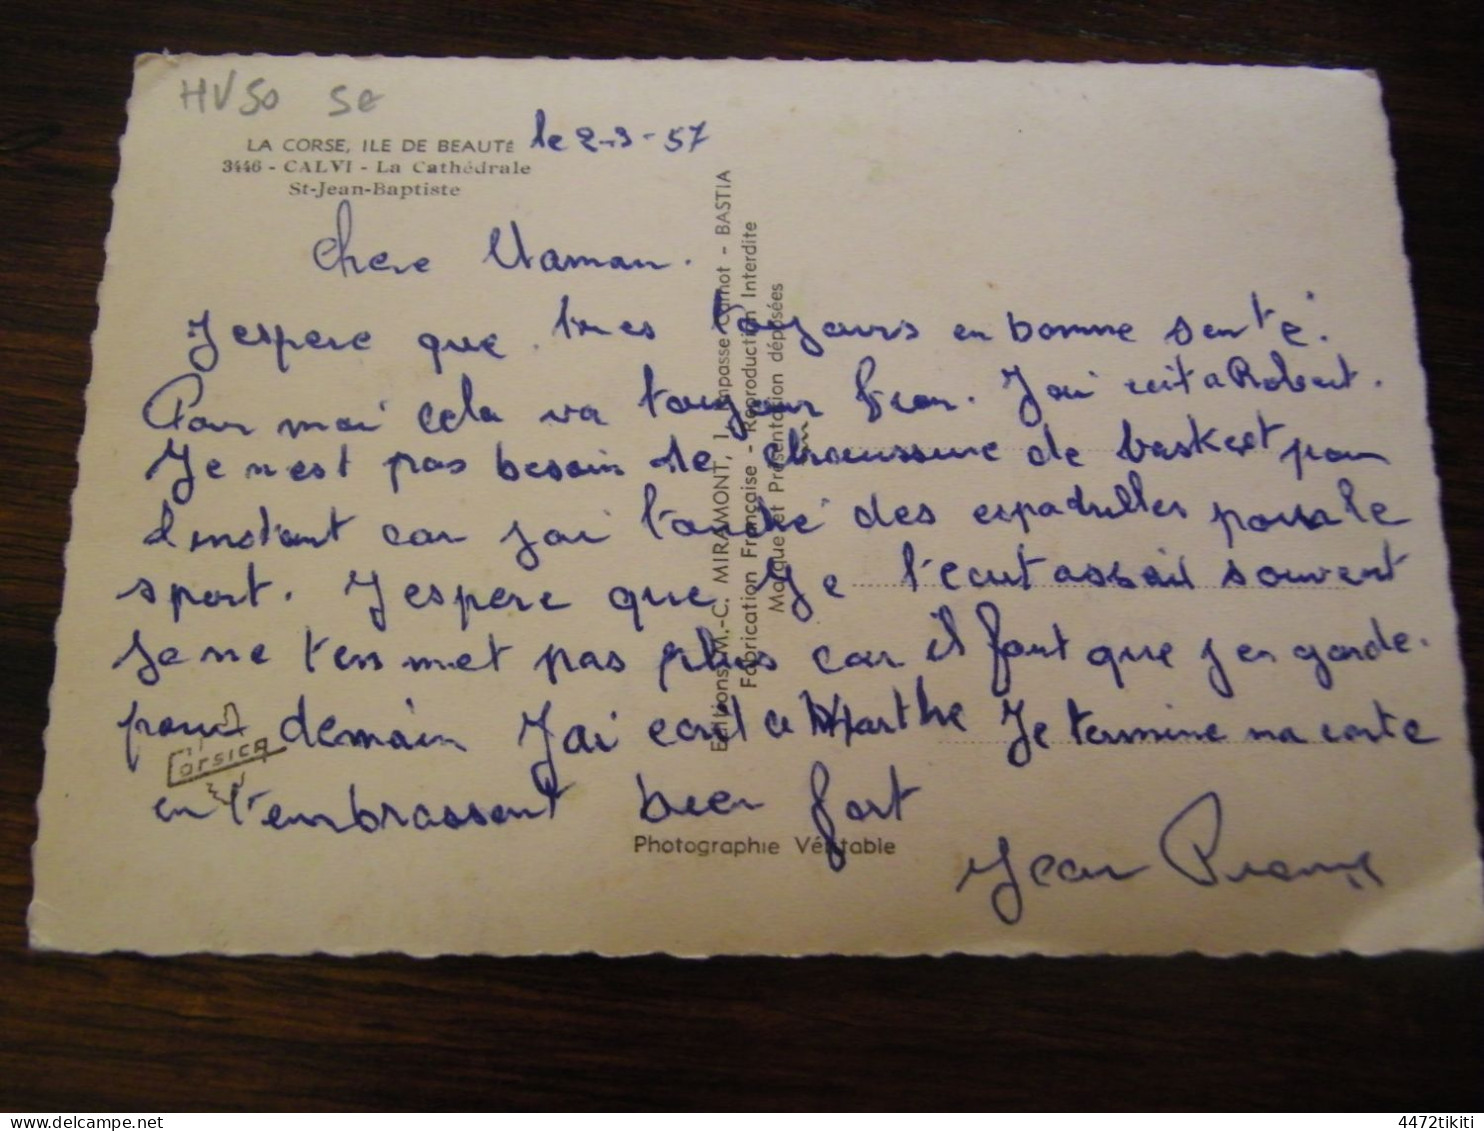 HV50 5e
LA CORSE, ILE DE BEAUTÉ le 2-3-57
3446 - CALVI - La Cathédrale
St-Jean-Baptiste
chere Maman.
J espere que tu es toujours en bonne sente.
Pour moi cela va toujour bien. J ai ecrit a Robert.
Je n est pas besoin de chaussure de basket pour
l instant car j ai touché des espadrilles pour le
sport. J espere que Je t ecrit assait souvent
Je ne t en met pas plus car il faut que j en garde.
pour demain J ai ecrit a Marthe Je termine ma carte
en t'embrassant bien fort
Jean Pierre
Editions M.-C. MIRAMONT, 1, Impasse Carnot - BASTIA
Fabrication Française - Reproduction Interdite
Marque et Présentation déposées
Corsica
Photographie Véritable
4472tikiti
delcampe.net